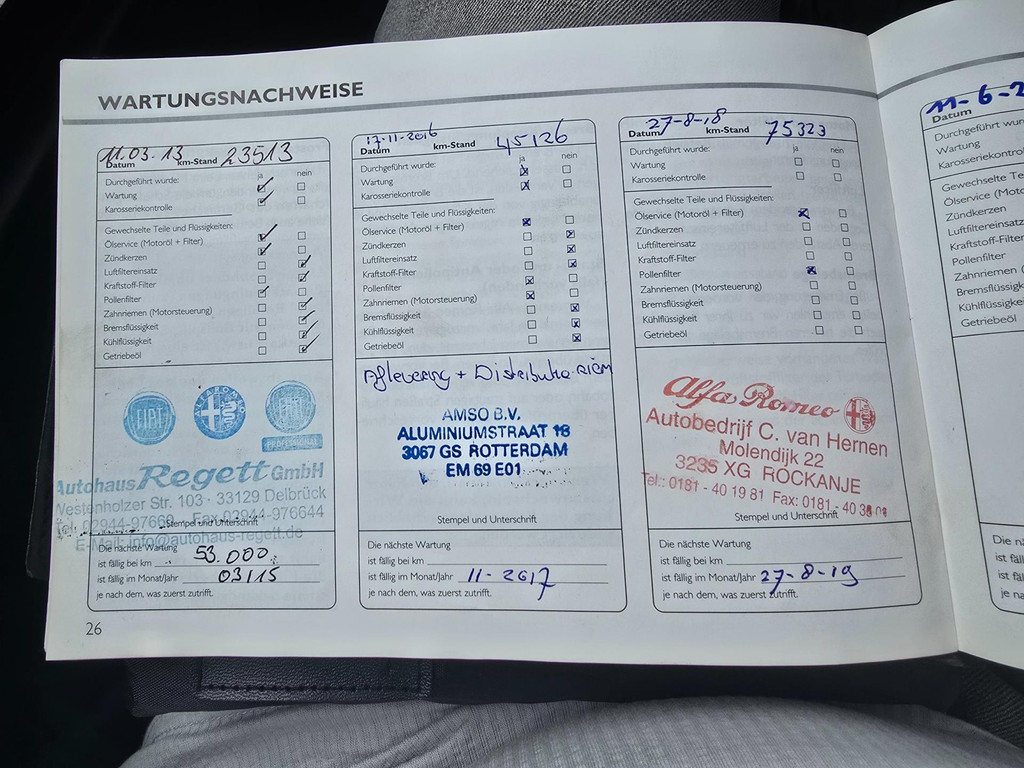 WARTUNGSNACHWEISE
11.03.13 23513
Datum km-Stand
ja nein
Durchgeführt wurde:
Wartung
Karosseriekontrolle
Gewechselte Teile und Flüssigkeiten:
Ölservice (Motoröl + Filter)
Zündkerzen
Luftfiltereinsatz
Kraftstoff-Filter
Pollenfilter
Zahnriemen (Motorsteuerung)
Bremsflüssigkeit
Kühlflüssigkeit
Getriebeöl
FIAT
ALFA ROMEO
FIAT
PROFESSIONAL
Autohaus Regett GmbH
Westenholzer Str. 103 · 33129 Delbrück
Tel. 02944-97666 Fax 02944-976644
Stempel und Unterschrift
E-Mail: info@autohaus-regett.de
Die nächste Wartung
ist fällig bei km 53.000
ist fällig im Monat/Jahr 03/15
je nach dem, was zuerst zutrifft.
26
17-11-2016 45126
Datum km-Stand
ja nein
Durchgeführt wurde:
Wartung
Karosseriekontrolle
Gewechselte Teile und Flüssigkeiten:
Ölservice (Motoröl + Filter)
Zündkerzen
Luftfiltereinsatz
Kraftstoff-Filter
Pollenfilter
Zahnriemen (Motorsteuerung)
Bremsflüssigkeit
Kühlflüssigkeit
Getriebeöl
Aflevering + Distributie riem
AMSO B.V.
ALUMINIUMSTRAAT 18
3067 GS ROTTERDAM
EM 69 E01
Stempel und Unterschrift
Die nächste Wartung
ist fällig bei km
ist fällig im Monat/Jahr 11-2017
je nach dem, was zuerst zutrifft.
27-8-18 75323
Datum km-Stand
ja nein
Durchgeführt wurde:
Wartung
Karosseriekontrolle
Gewechselte Teile und Flüssigkeiten:
Ölservice (Motoröl + Filter)
Zündkerzen
Luftfiltereinsatz
Kraftstoff-Filter
Pollenfilter
Zahnriemen (Motorsteuerung)
Bremsflüssigkeit
Kühlflüssigkeit
Getriebeöl
Alfa Romeo
Autobedrijf C. van Hernen
Molendijk 22
3235 XG ROCKANJE
Tel.: 0181 - 40 19 81 Fax: 0181 - 40
Stempel und Unterschrift
Die nächste Wartung
ist fällig bei km
ist fällig im Monat/Jahr 27-8-19
je nach dem, was zuerst zutrifft.
11-6-2
Datum
Durchgeführt wur
Wartung
Karosseriekontrol
Gewechselte Te
Ölservice (Motor
Zündkerzen
Luftfiltereinsatz
Kraftstoff-Filter
Pollenfilter
Zahnriemen (Mot
Bremsflüssigk
Kühlflüssigke
Getriebeöl
Die n
ist fäll
ist fäll
je na